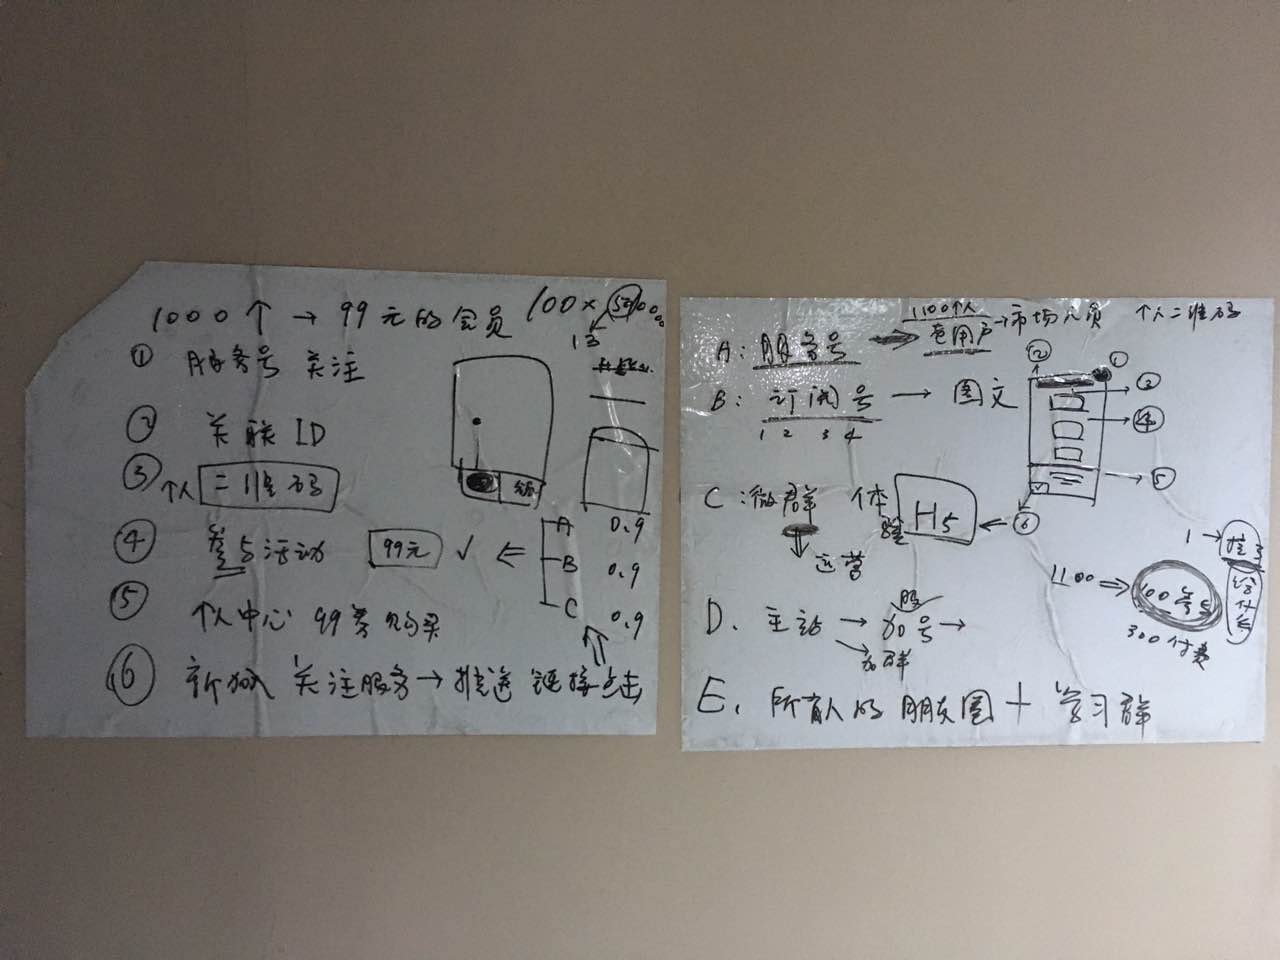 1000个 → 99元的会员 100×
13
① 服务号 关注
② 关联 ID
③ 个人 二维码
④ 参与活动 99元 ✓ ⇐ A 0.9
B 0.9
C 0.9
⑤ 个人中心 99 购买
⑥ 关注服务 → 推送 链接点击
A: 服务号 → 1100个人 → 市场人员 个人二维码
老用户
B: 订阅号 → 图文
1 2 3 4
② ①
③
④
⑤
⑥
C: 微群 体验 H5 ←
⇓ 运营
1 →
1100 ⇒ 100
300付费
D. 主站 → 加号 →
服
加群
E. 所有人的朋友圈 + 学习群